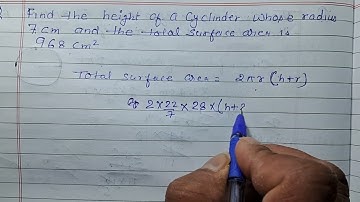 Find the height of a cylinder whose radius
7cm and the total surface area is
968 cm²
Total surface area = 2πr (h+r)
2 × 22/7 × 28 × (h+2